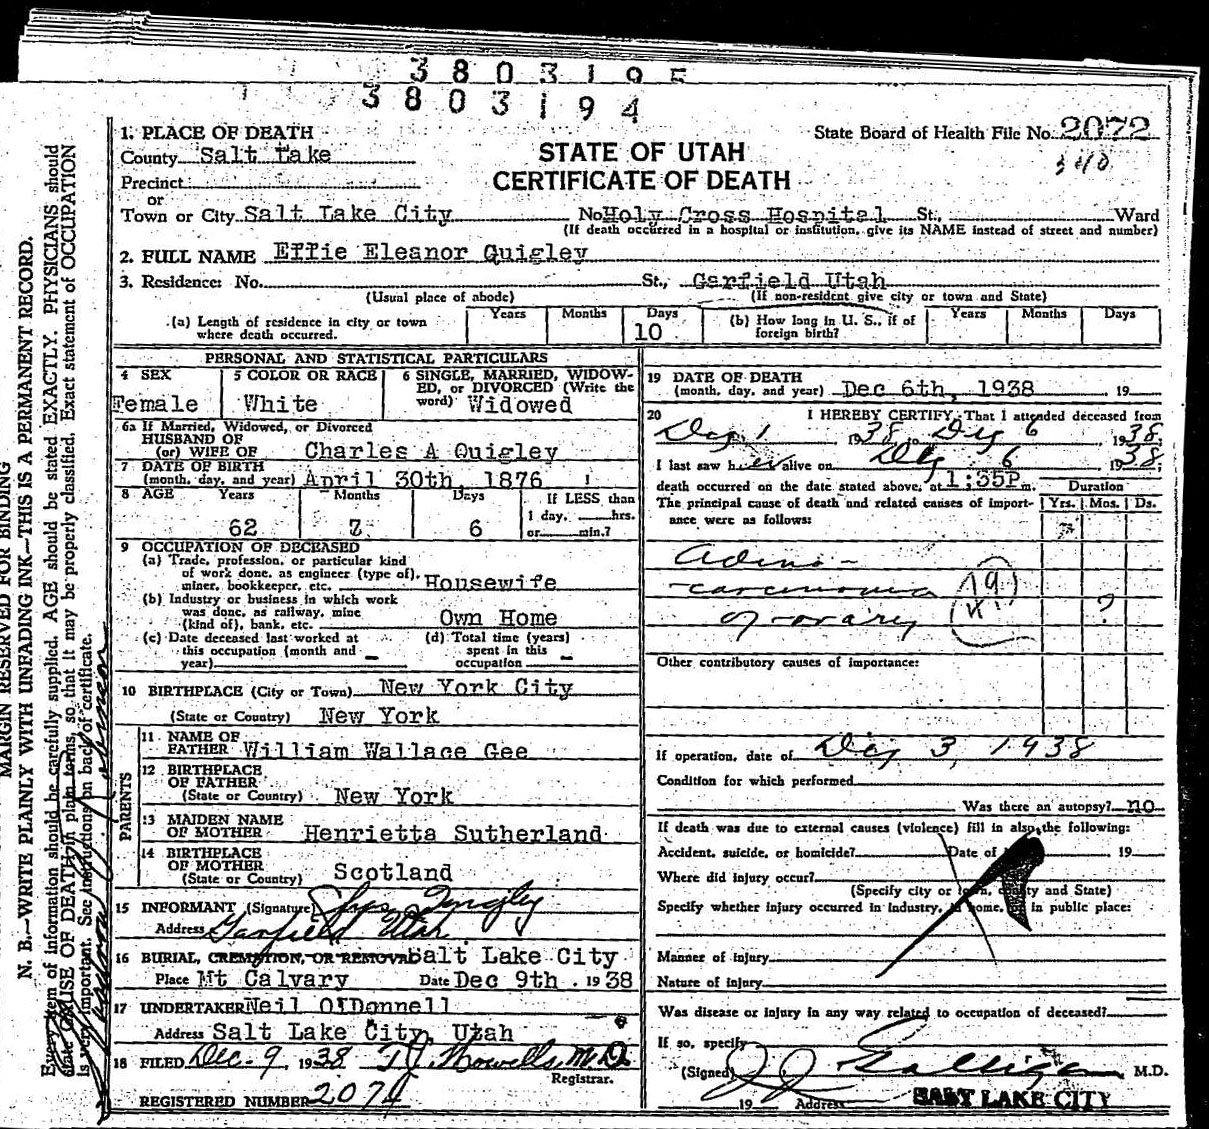 3803195
3803194
1. PLACE OF DEATH
State Board of Health File No. 2072
County Salt Lake
STATE OF UTAH
340
Precinct
CERTIFICATE OF DEATH
or
Town or City Salt Lake City No. Holy Cross Hospital St., Ward
(If death occurred in a hospital or institution, give its NAME instead of street and number)
2. FULL NAME Effie Eleanor Quigley
3. Residence: No. St., Garfield Utah
(Usual place of abode) (If non-resident give city or town and State)
(a) Length of residence in city or town where death occurred. Years Months Days 10
(b) How long in U. S., if of foreign birth? Years Months Days
PERSONAL AND STATISTICAL PARTICULARS
4 SEX Female
5 COLOR OR RACE White
6 SINGLE, MARRIED, WIDOWED, or DIVORCED (Write the word) Widowed
6a If Married, Widowed, or Divorced
HUSBAND OF
(or) WIFE OF Charles A Quigley
7 DATE OF BIRTH
(month, day, and year) April 30th, 1876
8 AGE Years Months Days If LESS than
62 7 6 1 day, hrs.
or min.?
9 OCCUPATION OF DECEASED
(a) Trade, profession, or particular kind
of work done, as engineer (type of),
miner, bookkeeper, etc. Housewife
(b) Industry or business in which work
was done, as railway, mine
(kind of), bank, etc. Own Home
(c) Date deceased last worked at this occupation (month and year) -
(d) Total time (years) spent in this occupation -
10 BIRTHPLACE (City or Town) New York City
(State or Country) New York
PARENTS
11 NAME OF
FATHER William Wallace Gee
12 BIRTHPLACE
OF FATHER
(State or Country) New York
13 MAIDEN NAME
OF MOTHER Henrietta Sutherland
14 BIRTHPLACE
OF MOTHER
(State or Country) Scotland
15 INFORMANT (Signature) Quigley
Address Garfield Utah
16 BURIAL, CREMATION, OR REMOVAL Salt Lake City
Place Mt Calvary Date Dec 9th 1938
17 UNDERTAKER Neil O'Donnell
Address Salt Lake City, Utah
18 FILED Dec. 9 1938 T.J. Howells M.D.
Registrar.
REGISTERED NUMBER 2074
19 DATE OF DEATH
(month, day, and year) Dec 6th, 1938 19
20 I HEREBY CERTIFY, That I attended deceased from
1 1938, 6 1938,
I last saw her alive on 6 1938
death occurred on the date stated above, at 1:35P m.
The principal cause of death and related causes of importance were as follows: Duration Yrs. Mos. Ds.
Adeno-
carcinoma
of ovary ?
Other contributory causes of importance:
If operation, date of 3, 1938
Condition for which performed
Was there an autopsy? no
If death was due to external causes (violence) fill in also the following:
Accident, suicide, or homicide? Date of 19
Where did injury occur?
(Specify city or town, county and State)
Specify whether injury occurred in industry, in home, or in public place:
Manner of injury
Nature of injury
Was disease or injury in any way related to occupation of deceased?
If so, specify
(Signed) J J Galligan M.D.
19 Address SALT LAKE CITY
MARGIN RESERVED FOR BINDING
N. B.—WRITE PLAINLY WITH UNFADING INK—THIS IS A PERMANENT RECORD.
Every item of information should be carefully supplied. AGE should be stated EXACTLY. PHYSICIANS should
state CAUSE OF DEATH in plain terms, so that it may be properly classified. Exact statement of OCCUPATION
is very important. See instructions on back of certificate.